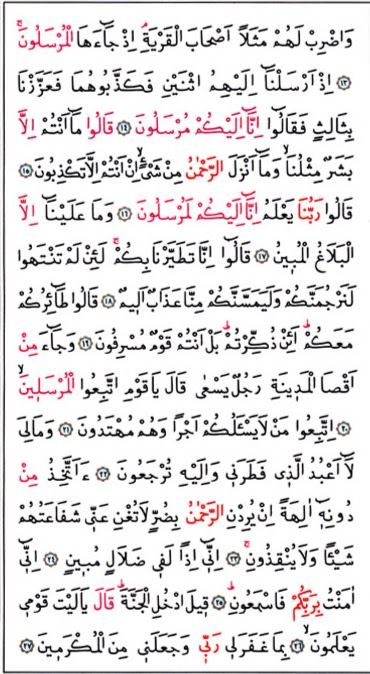 وَاضْرِبْ لَهُمْ مَثَلاً اَصْحَابَ الْقَرْيَةِۢ اِذْ جَٓاءَهَا الْمُرْسَلُونَۚ
﴿١٣﴾ اِذْ اَرْسَلْنَٓا اِلَيْهِمُ اثْنَيْنِ فَكَذَّبُوهُمَا فَعَزَّزْنَا
بِثَالِثٍ فَقَالُٓوا اِنَّٓا اِلَيْكُمْ مُرْسَلُونَ ﴿١٤﴾ قَالُوا مَٓا اَنْتُمْ اِلَّا
بَشَرٌ مِثْلُنَاۙ وَمَٓا اَنْزَلَ الرَّحْمٰنُ مِنْ شَيْءٍۙ اِنْ اَنْتُمْ اِلَّا تَكْذِبُونَ ﴿١٥﴾
قَالُوا رَبُّنَا يَعْلَمُ اِنَّٓا اِلَيْكُمْ لَمُرْسَلُونَ ﴿١٦﴾ وَمَا عَلَيْنَٓا اِلَّا
الْبَلَاغُ الْمُبٖينُ ﴿١٧﴾ قَالُٓوا اِنَّا تَطَيَّرْنَا بِكُمْۚ لَئِنْ لَمْ تَنْتَهُوا
لَنَرْجُمَنَّكُمْ وَلَيَمَسَّنَّكُمْ مِنَّا عَذَابٌ اَلٖيمٌ ﴿١٨﴾ قَالُوا طَٓائِرُكُمْ
مَعَكُمْۜ اَئِنْ ذُكِّرْتُمْۜ بَلْ اَنْتُمْ قَوْمٌ مُسْرِفُونَ ﴿١٩﴾ وَجَٓاءَ مِنْ
اَقْصَا الْمَدٖينَةِ رَجُلٌ يَسْعٰى قَالَ يَا قَوْمِ اتَّبِعُوا الْمُرْسَلٖينَۙ
﴿٢٠﴾ اِتَّبِعُوا مَنْ لَا يَسْـَٔلُكُمْ اَجْراً وَهُمْ مُهْتَدُونَ ﴿٢١﴾ وَمَا لِيَ
لَٓا اَعْبُدُ الَّذٖي فَطَرَنٖي وَاِلَيْهِ تُرْجَعُونَ ﴿٢٢﴾ ءَاَتَّخِذُ مِنْ
دُونِهٖٓ اٰلِهَةً اِنْ يُرِدْنِ الرَّحْمٰنُ بِضُرٍّ لَا تُغْنِ عَنّٖي شَفَاعَتُهُمْ
شَيْـٔاً وَلَا يُنْقِذُونِۚ ﴿٢٣﴾ اِنّٖٓي اِذاً لَفٖي ضَلَالٍ مُبٖينٍ ﴿٢٤﴾ اِنّٖٓي
اٰمَنْتُ بِرَبِّكُمْ فَاسْمَعُونِۜ ﴿٢٥﴾ قٖيلَ ادْخُلِ الْجَنَّةَۜ قَالَ يَا لَيْتَ قَوْمٖي
يَعْلَمُونَۙ ﴿٢٦﴾ بِمَا غَفَرَ لٖي رَبّٖي وَجَعَلَنٖي مِنَ الْمُكْرَمٖينَ ﴿٢٧﴾